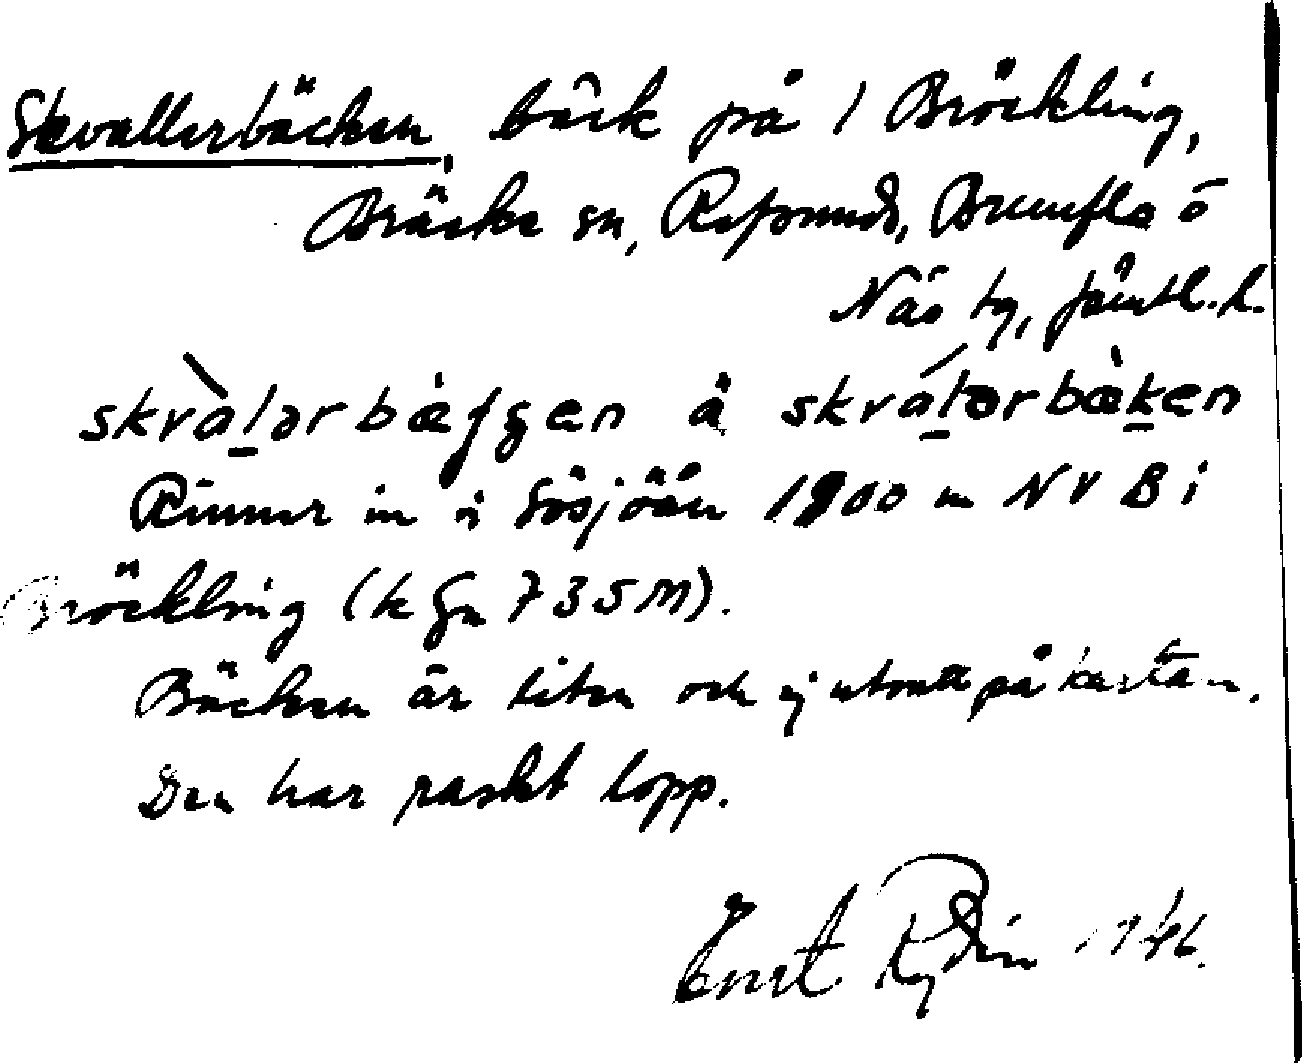 Skvallerbäcken, bäck på 1 Bröckling,
Bräcke sn, Refsunds, Brunflo o
Näs tg, Jämtl. l.
skvàlərbæʃgen å skválərbæken
Rinner in i Sösjöån 1900 m NV B i
Bröckling (k gn 735 M).
Bäcken är liten och ej utsatt på kartan.
Den har raskt lopp.
Ernst Rydén 1946.